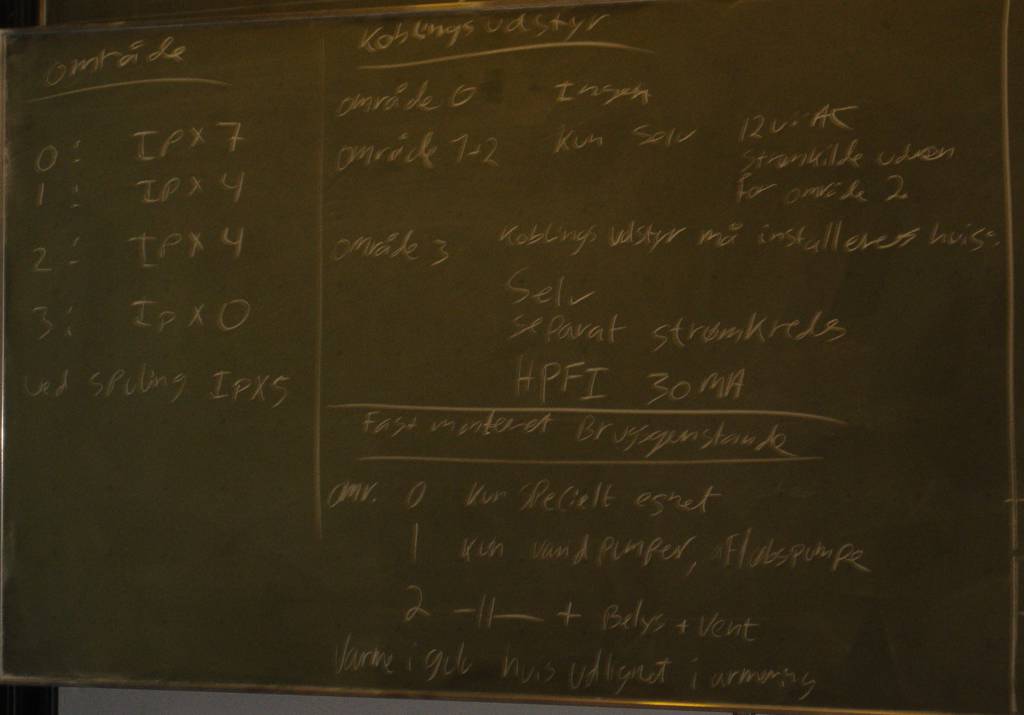 område
0: IPX7
1: IPX4
2: IPX4
3: IPX0
ved spuling IPX5
Koblingsudstyr
område 0 Ingen
område 1+2 Kun Selv 12v AC
Strømkilde uden
for område 2
område 3 Koblings udstyr må installeres hvis:
Selv
separat strømkreds
HPFI 30MA
Fast monteret Brugsgenstande
omr. 0 kun specielt egnet
1 kun vandpumper, afløbspumpe
2 -||- + Belys + vent
Varme i gulv hvis udlignet i armering